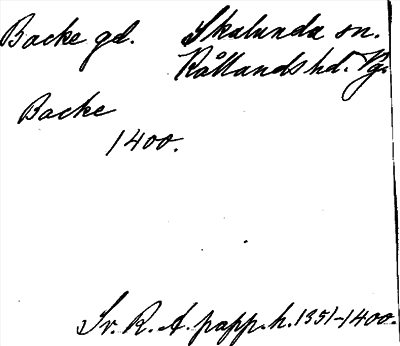 Backe gd. Skalunda sn.
Kållands hd. Vg.
Backe
1400.
Sv. R. A. papp. h. 1351-1400.